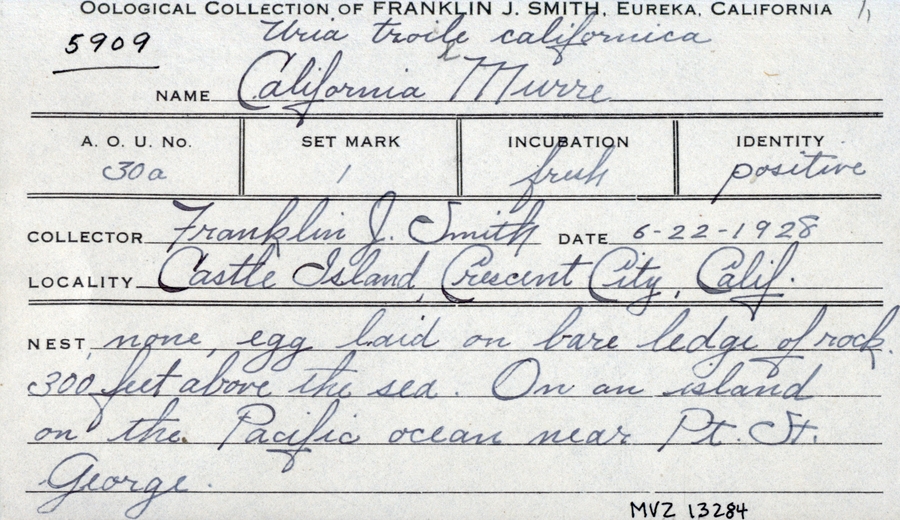 OOLOGICAL COLLECTION OF FRANKLIN J. SMITH, EUREKA, CALIFORNIA
5909
Uria troile californica
NAME California Murre
A. O. U. No. SET MARK INCUBATION IDENTITY
30a 1 fresh positive
COLLECTOR Franklin J. Smith DATE 6-22-1928
LOCALITY Castle Island, Crescent City, Calif.
NEST none, egg laid on bare ledge of rock.
300 feet above the sea. On an island
on the Pacific ocean near Pt. St.
George.
MVZ 13284